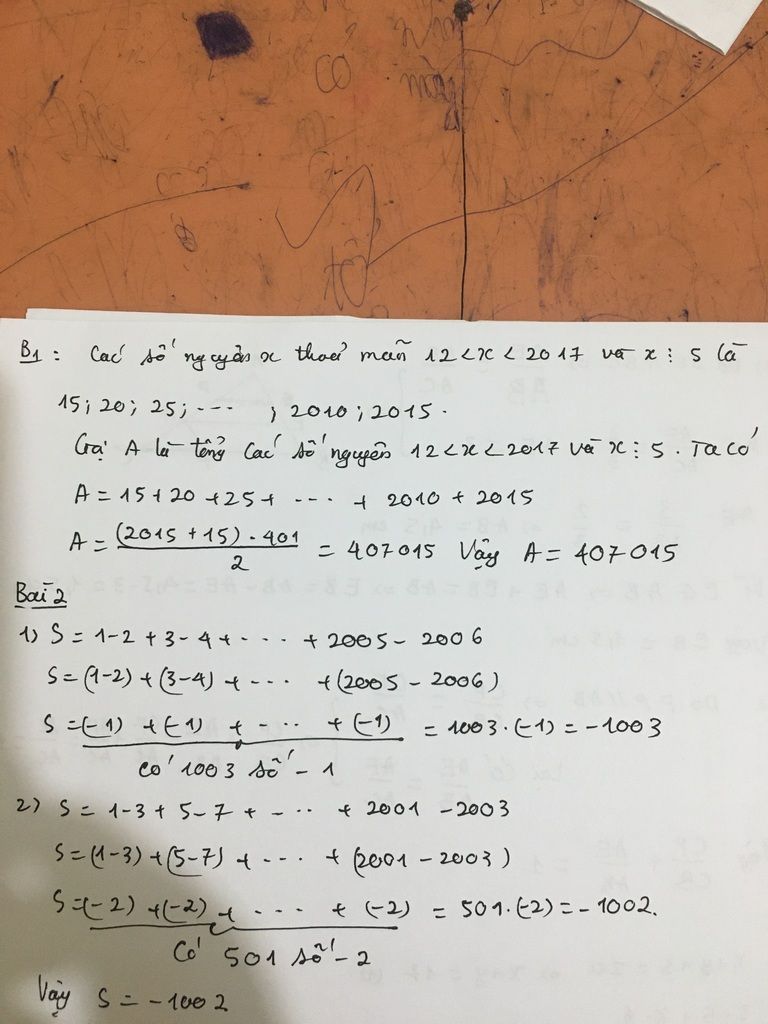 B1: Các số nguyên x thoả mãn 12 < x < 2017 và x ⋮ 5 là
15; 20; 25; ---- ; 2010; 2015.
Gọi A là tổng các số nguyên 12 < x < 2017 và x ⋮ 5. Ta có
A = 15 + 20 + 25 + ---- + 2010 + 2015
A = (2015 + 15) . 401 / 2 = 407015 Vậy A = 407015
Bài 2
1) S = 1 - 2 + 3 - 4 + - --- + 2005 - 2006
S = (1-2) + (3-4) + ---- + (2005 - 2006)
S = (-1) + (-1) + - --- + (-1) = 1003 . (-1) = -1003
Có 1003 số -1
2) S = 1 - 3 + 5 - 7 + - --- + 2001 - 2003
S = (1-3) + (5-7) + ---- + (2001 - 2003)
S = (-2) + (-2) + - --- + (-2) = 501 . (-2) = -1002.
Có 501 số -2
Vậy S = -1002